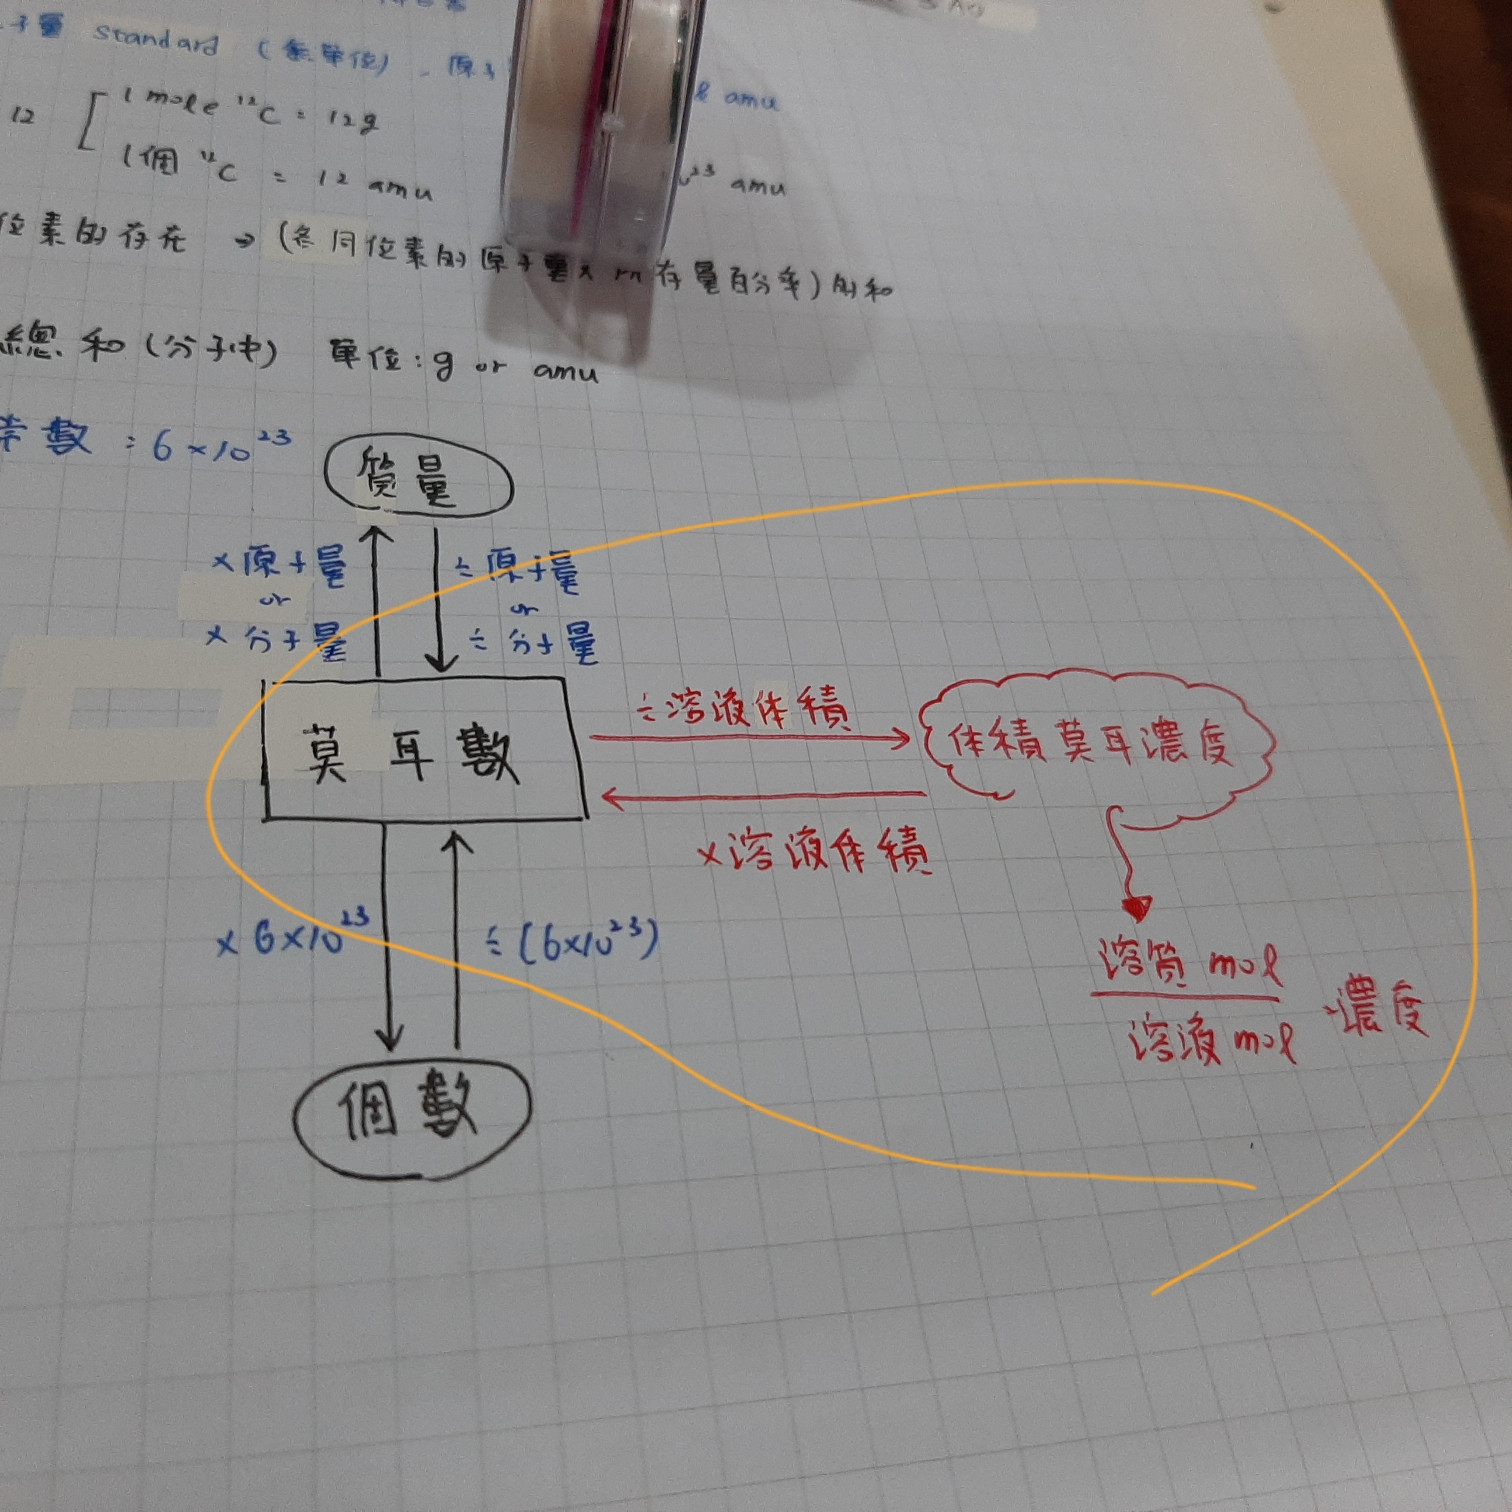 子量 standard (無單位), 原子
amu
12 1 mole ¹²C = 12g
1個 ¹²C = 12 amu
²³ amu
位素的存在 → (各同位素的原子量× 存量百分率) 的和
總和(分子中) 單位:g or amu
常數:6×10²³
質量
×原子量
or
×分子量
÷原子量
or
÷分子量
莫耳數
÷溶液体積
体積莫耳濃度
×溶液体積
×6×10²³
÷(6×10²³)
溶質 mol
溶液 mol
濃度
個數